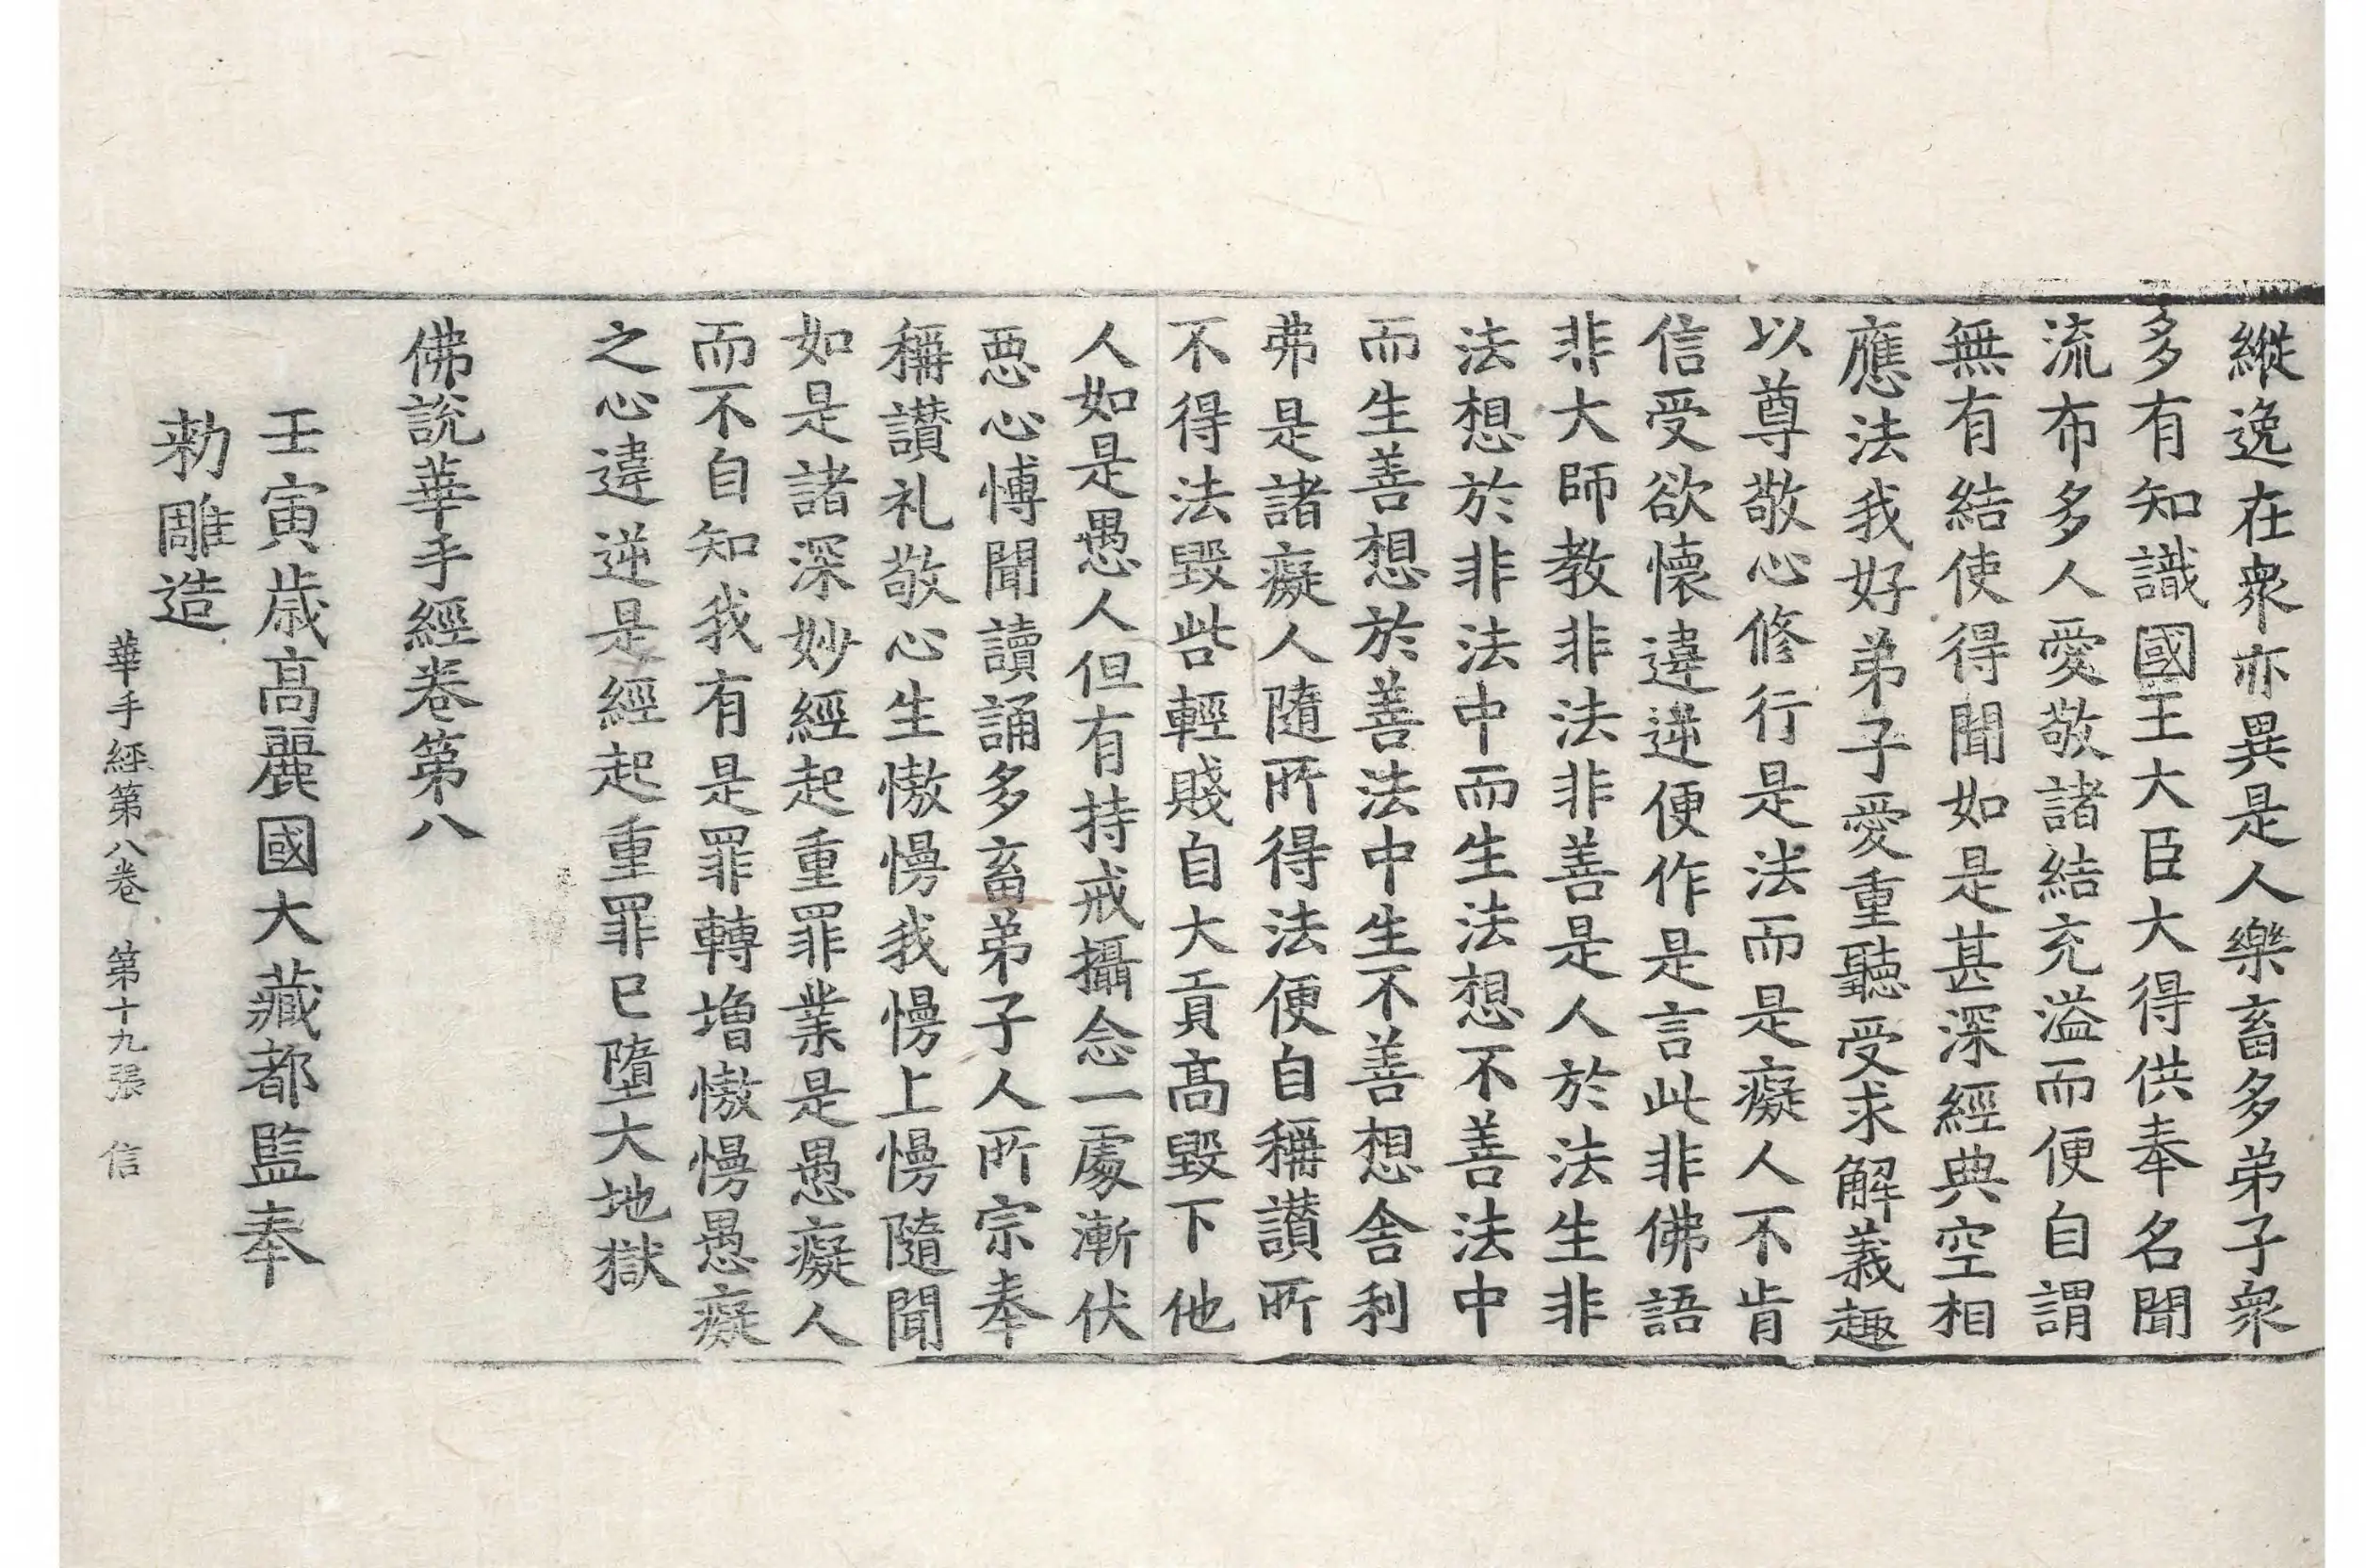 縱逸在衆亦異是人樂畜多弟子衆
多有知識國王大臣大得供奉名聞
流布多人愛敬諸結充溢而便自謂
無有結使得聞如是甚深經典空相
應法我好弟子愛重聽受求解義趣
以尊敬心修行是法而是癡人不肯
信受欲懷違逆便作是言此非佛語
非大師教非法非善是人於法生非
法想於非法中而生法想不善法中
而生善想於善法中生不善想舍利
弗是諸癡人隨所得法便自稱讃所
不得法毀呰輕賤自大貢髙毀下他
人如是愚人但有持戒攝念一處漸伏
惡心博聞讀誦多畜弟子人所宗奉
稱讃礼敬心生憿慢我慢上慢隨聞
如是諸深妙經起重罪業是愚癡人
而不自知我有是罪轉增憿慢愚癡
之心違逆是經起重罪已墮大地獄
佛說華手經卷第八
壬寅歳髙麗國大藏都監奉
勑雕造
華手經第八卷 第十九張 信